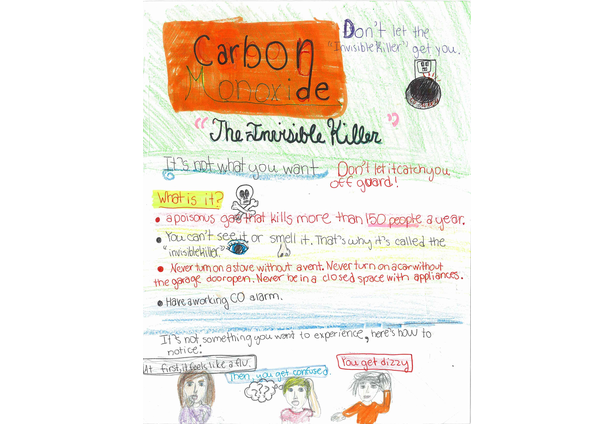 Carbon
Monoxide
Don't let the
"Invisible Killer" get you.
"The Invisible Killer"
It's not what you want
Don't let it catch you
off guard!
What is it?
• a poisonus gas that kills more than 150 people a year.
• You can't see it or smell it. That's why it's called the
"invisible killer."
• Never turn on a stove without a vent. Never turn on a car without
the garage door open. Never be in a closed space with appliances.
• Have a working CO alarm.
It's not something you want to experience, here's how to
notice:
At first, it feels like a flu.
Then, you get confused.
You get dizzy